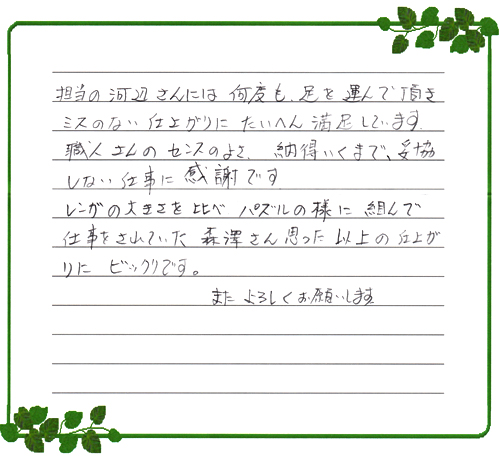 担当の河辺さんには何度も、足を運んで頂き
ミスのない仕上がりにたいへん満足しています。
職人さんのセンスのよさ、納得いくまで、妥協
しない仕事に感謝です
レンガの大きさを比べパズルの様に組んで
仕事をされていた森澤さん思った以上の仕上が
りにビックリです。
またよろしくお願いします